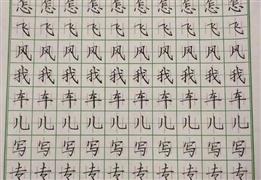 怎怎怎怎怎怎怎怎怎怎
飞飞飞飞飞飞飞飞飞飞
风风风风风风风风风风
我我我我我我我我我我
车车车车车车车车车车
儿儿儿儿儿儿儿儿儿儿
写写写写写写写写写写
专专专专专专专专专专